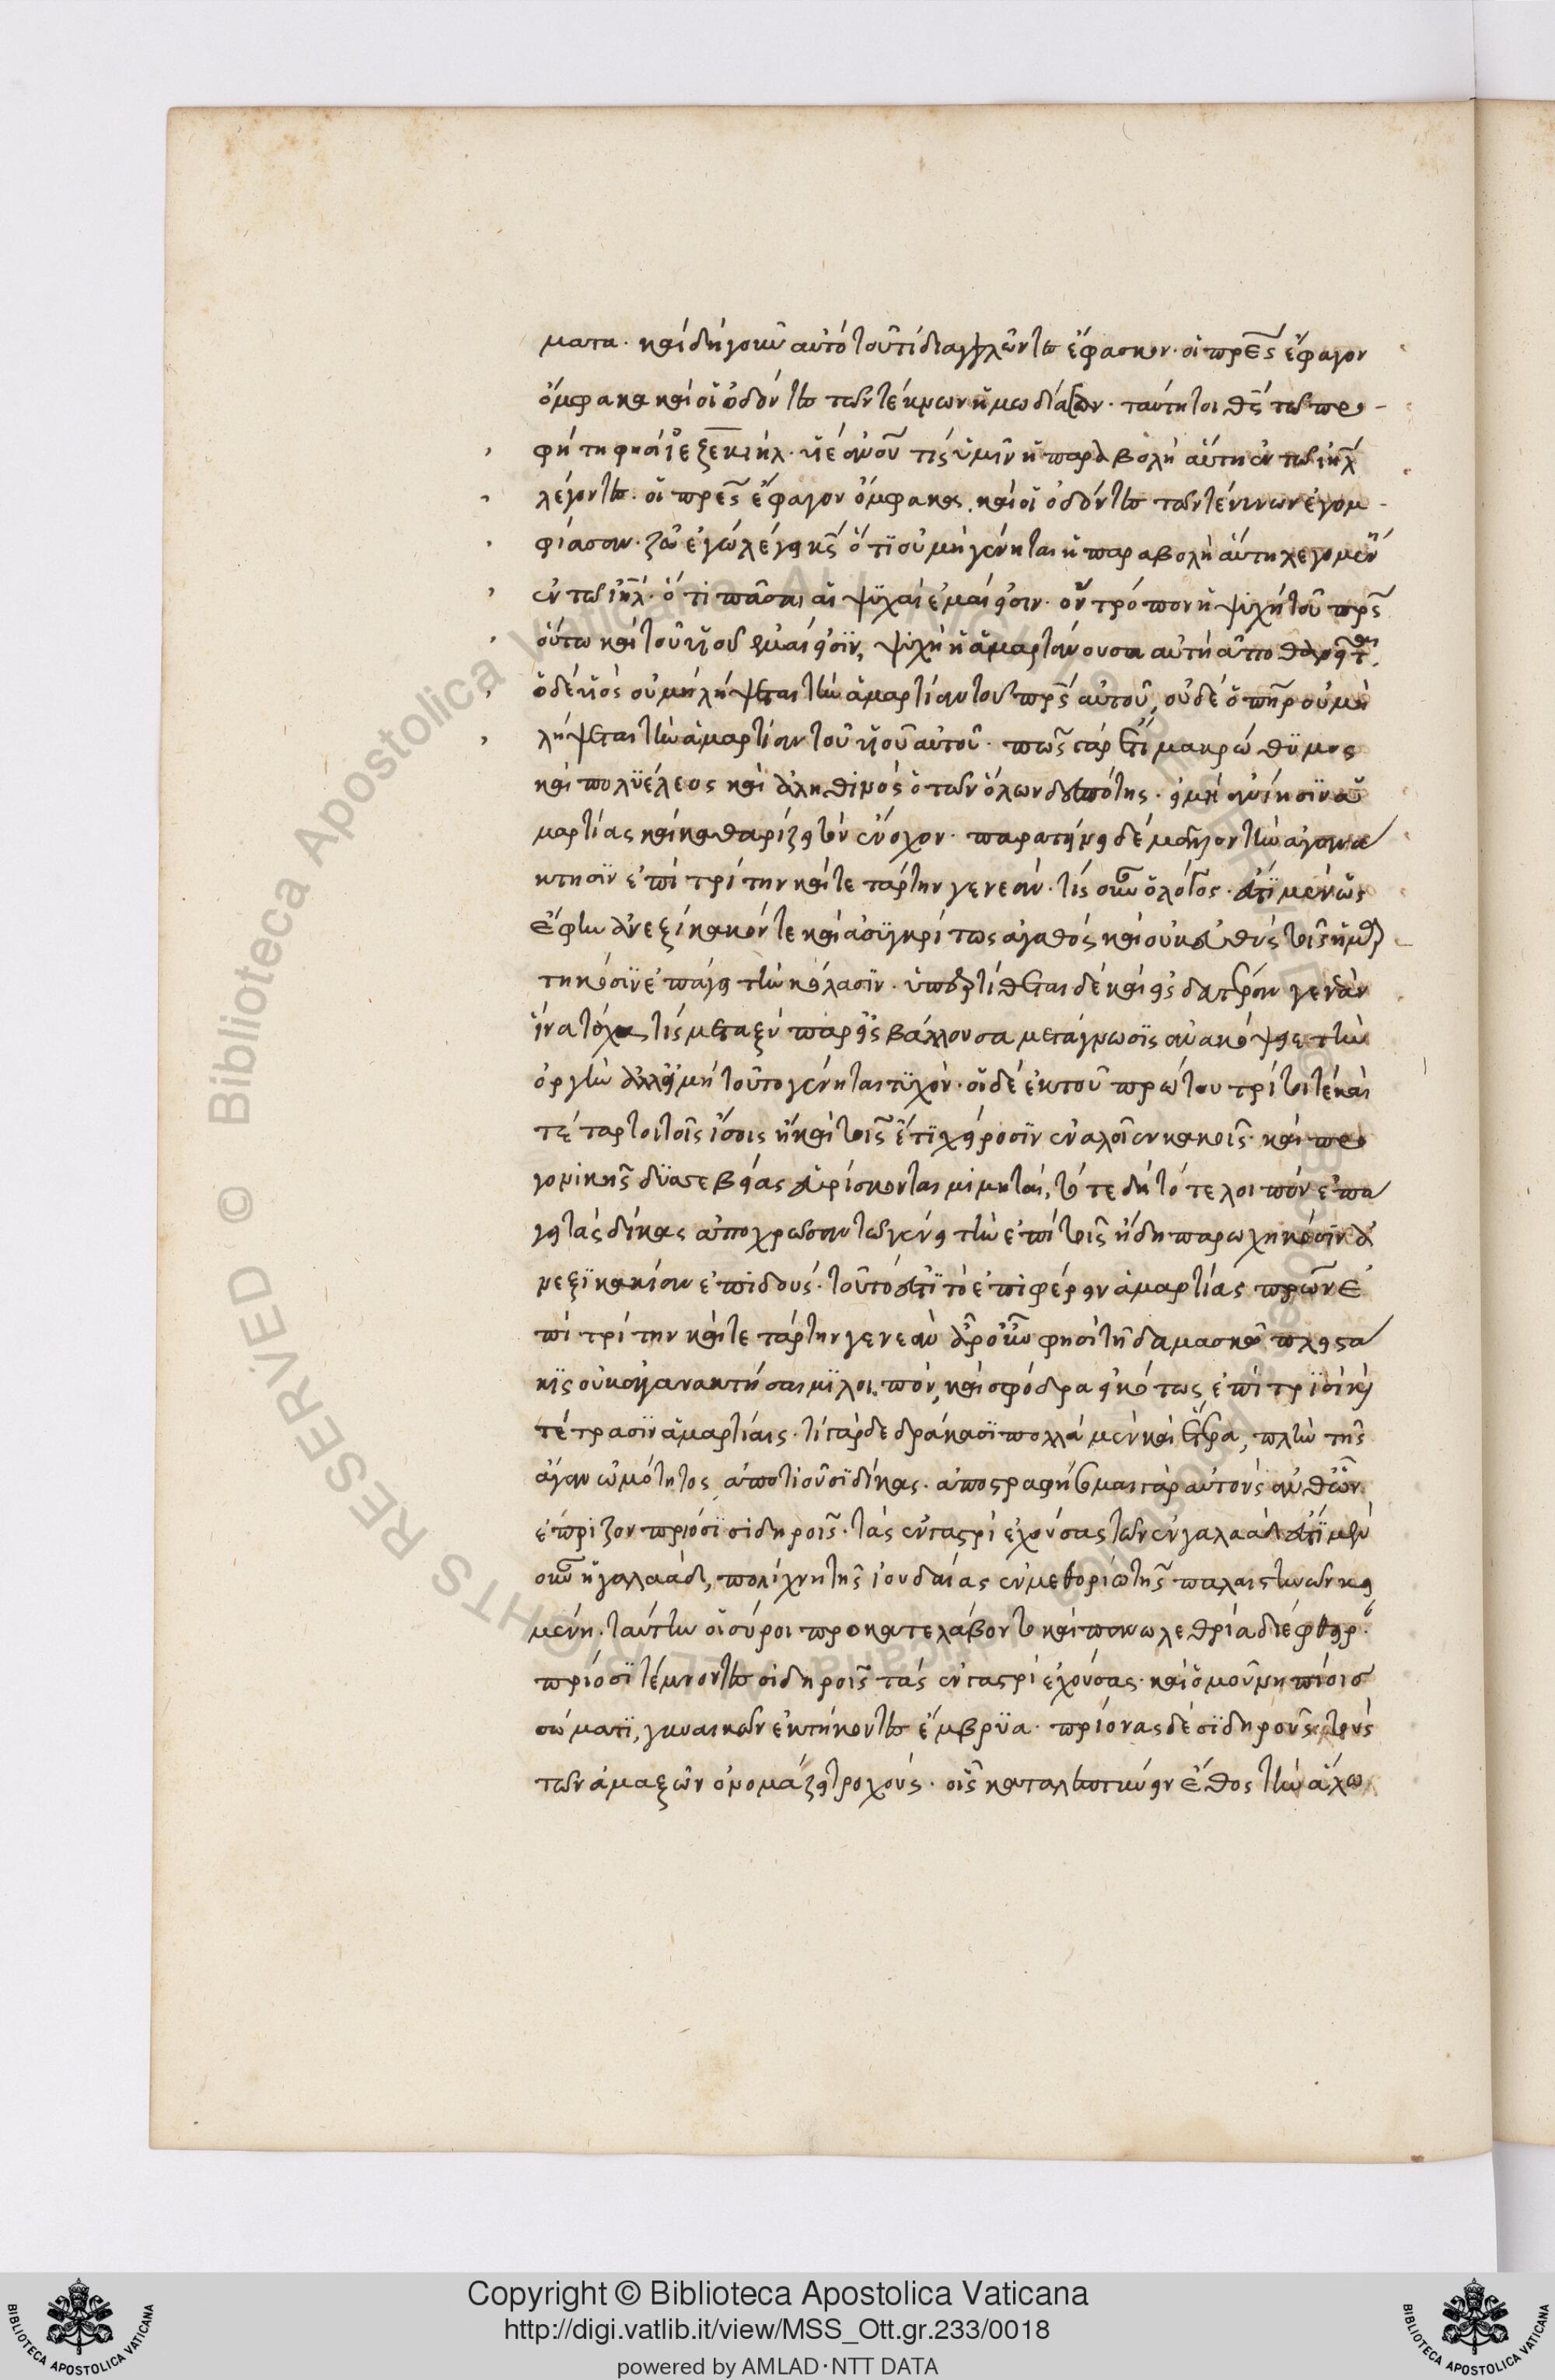 ματα. καὶ δὴ γοῦν αὐτὸ τουτὶ διαγγελῶντες ἔφασκον. οἱ πρες ἔφαγον
ὄμφακα καὶ οἱ ὀδόντες τῶν τέκνων ἡμωδίασαν. ταύτητοι θς τῷ προ
φήτη φησὶν ἰεζεκιήλ. υἱὲ ἀνου τίς ὑμῖν ἡ παραβολὴ αὕτη ἐν τῷ ιηλ
λέγοντες. οἱ πρες ἔφαγον ὄμφακας, καὶ οἱ ὀδόντες τῶν τέκνων ἐγομ
φίασαν. ζῶ ἐγὼ λέγει κς ὅτι οὐ μὴ γένηται ἡ παραβολὴ αὕτη λεγομένη
ἐν τῷ ιηλ. ὅτι πᾶσαι αἱ ψυχαὶ ἐμαί εἰσιν. ὃν τρόπον ἡ ψυχὴ τοῦ πρς
οὕτω καὶ τοῦ υἱοῦ ἐμαί εἰσιν, ψυχὴ ἡ ἁμαρτάνουσα αὐτὴ ἀποθανεῖται.
ὁ δὲ υἱὸς οὐ μὴ λήψεται τὴν ἁμαρτίαν τοῦ πρς αὐτοῦ, οὐδὲ ὁ πηρ οὐ μὴ
λήψεται τὴν ἁμαρτίαν τοῦ υἱοῦ αὐτοῦ. πῶς γάρ ἐστι μακρόθυμος
καὶ πολυέλεος καὶ ἀληθινὸς ὁ τῶν ὅλων δεσπότης. εἰ μὴ ἀνίησιν ἁ
μαρτίας καὶ καθαρίζει τὸν ἔνοχον. παρατείνει δὲ μᾶλλον τὴν ἀγανά
κτησιν ἐπὶ τρίτην καὶ τετάρτην γενεάν. τίς οὖν ὁ λόγος. ἔστι μὲν ὡς
ἔφην ἀνεξίκακόν τε καὶ ἀσυγκρίτως ἀγαθός καὶ οὐκ εὐθὺς τοῖς ἡμαρ
τηκόσιν ἐπάγει τὴν κόλασιν. ὑπερτίθεται δὲ καὶ εἰς δευτέραν γενεὰν
ἵνα τάχα τίς μεταξὺ παρεισβάλλουσα μετάγνωσις ἀνακόψει τὴν
ὀργὴν ἀλλ' εἰ μὴ τοῦτο γένηται τυχὸν. οἱ δὲ ἐκ τοῦ πρώτου τρίτοι τὲ καὶ
τέταρτοι τοῖς ἴσοις ἢ καὶ τοῖς ἔτι χείροσιν ἐναλοῖεν κακοῖς. καὶ προ
γονικῆς δυσσεβείας εὑρίσκονται μιμηταὶ, τότε δὴ τότε λοιπὸν ἐπά
γει τὰς δίκας ἀποχρῶσαν τῷ γένει τὴν ἐπὶ τοῖς ἤδη παρωχηκόσιν ἀ
νεξικακίαν ἐπιδούς. τοῦτό ἐστι τὸ ἐπιφέρειν ἁμαρτίας πρων ἐ
πὶ τρίτην καὶ τετάρτην γενεὰν ἆρ' οὖν φησὶ τῇ δαμασκῷ πλειστά
κις οὐκ ἀγανακτήσαιμι λοιπὸν, καὶ σφόδρα εἰκότως ἐπὶ τρισὶ καὶ
τέτρασιν ἁμαρτίαις. τί γὰρ δεδράκασι πολλὰ μὲν καὶ ἕτερα, πλὴν τῆς
ἄγαν ὠμότητος ἀποτιοῦσι δίκας. ἀποστραφήσομαι γὰρ αὐτοὺς ἀνθ' ὧν
ἔπριζον πρίοσι σιδηροῖς. τὰς ἐν γαστρὶ ἐχούσας τῶν ἐν γαλαάδ ἔστι μὲν
οὖν ἡ γαλαάδ, πολίχνη τῆς ἰουδαίας ἐν μεθορίω τῆς παλαιστίνων κει
μένη. ταύτην οἱ σύροι προκατελάβοντο καὶ πανωλεθρία διέφθειρον
πρίοσι τέμνοντες σιδηροῖς τὰς ἐν γαστρὶ ἐχούσας. καὶ ὁμοῦ νηπίοισ
σώματι, γυναικῶν ἐκτήκοντες ἔμβρυα. πρίονας δὲ σιδηροῦς, τοὺς
τῶν ἁμαξῶν ὀνομάζει τροχούς. οἷς καταλεπτύνειν ἔθος τὴν ἅλω